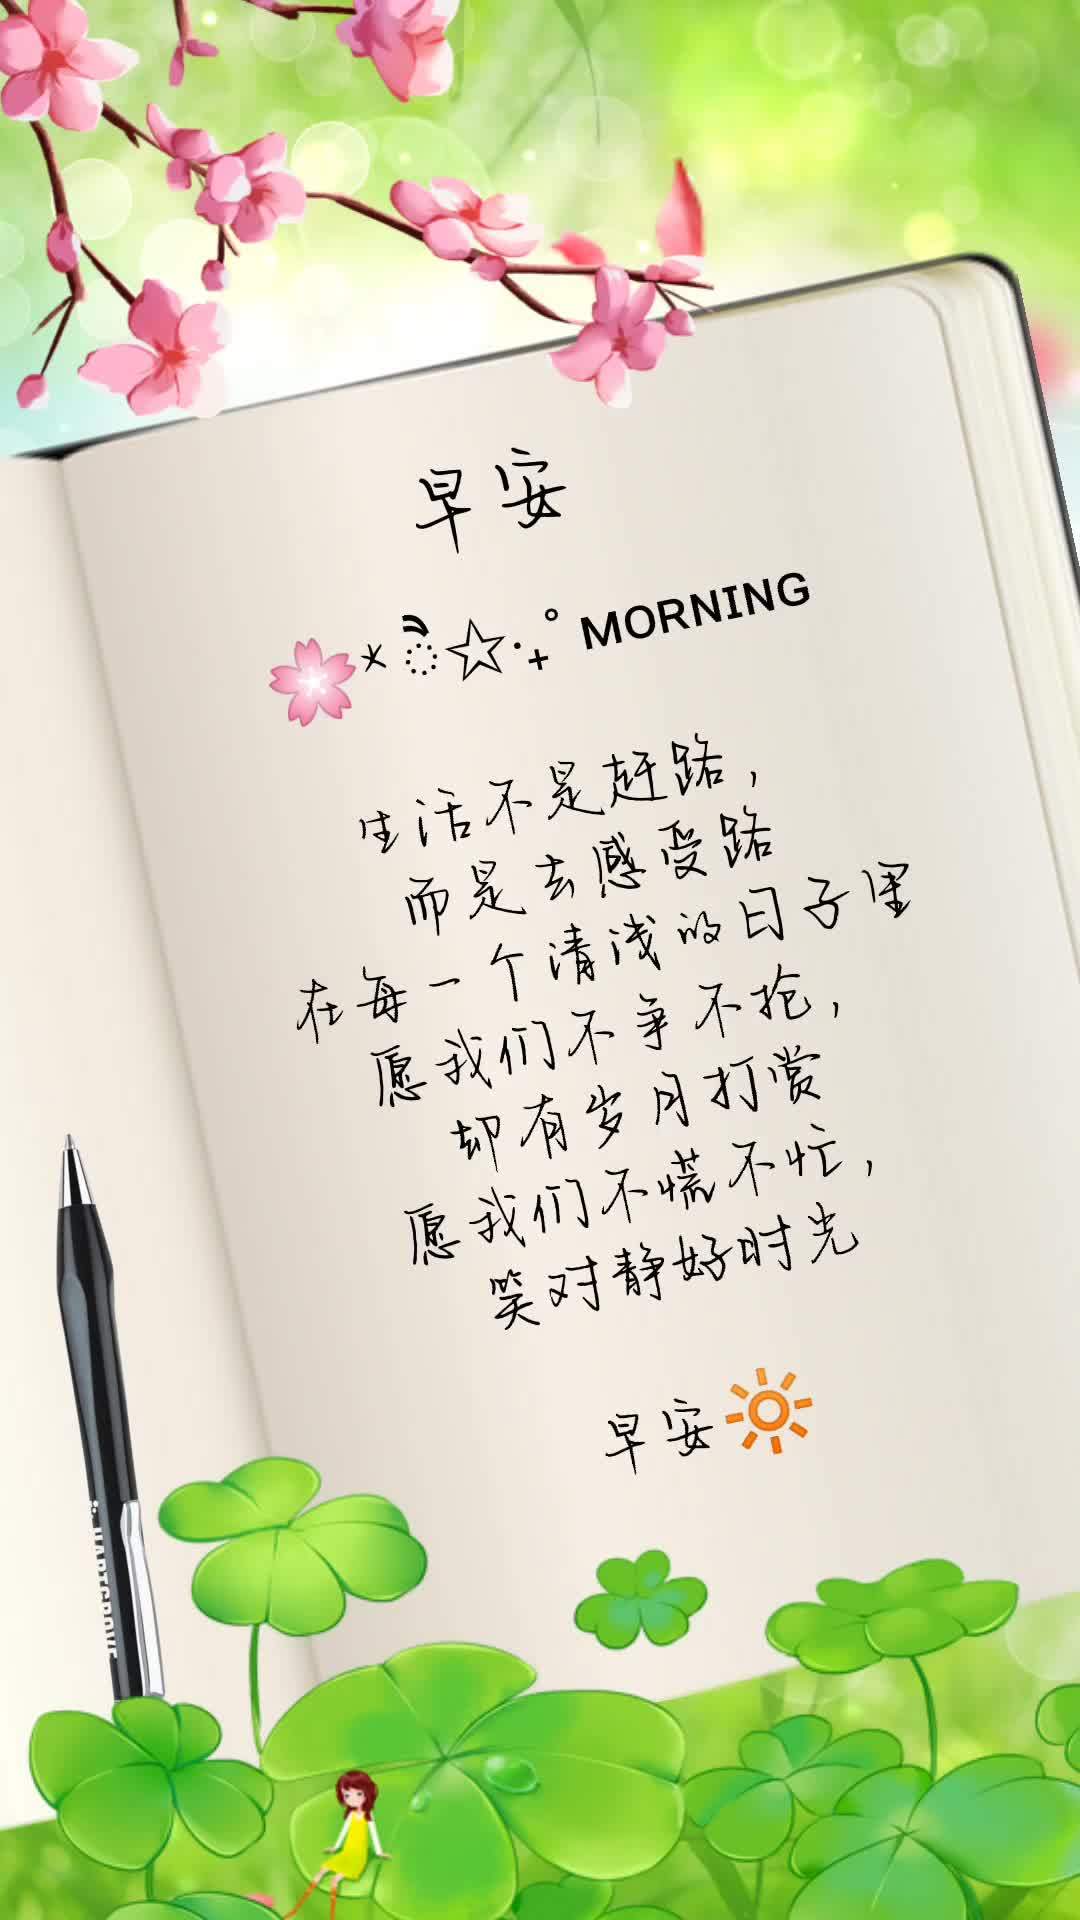 早安
🌸× ᩚ☆·₊˚ MORNING
生活不是赶路，
而是去感受路
在每一个清浅的日子里
愿我们不争不抢，
却有岁月打赏
愿我们不慌不忙，
笑对静好时光
早安🔆